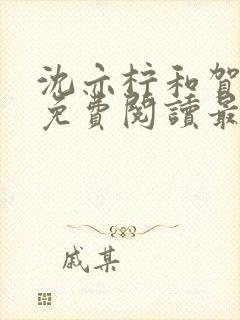 沈亦柠和贺
免費閱讀最
戚某